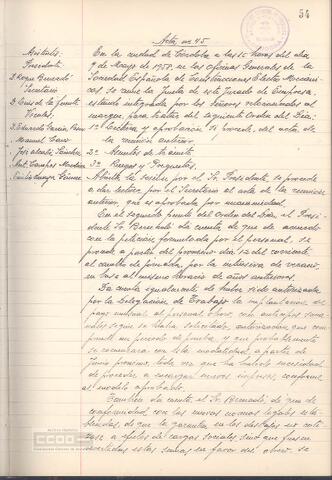 54
Acta, nº 45
Asistentes
Presidente
D. Roque Bernadó
Secretario
D. Luis de la Fuente
Vocales
D. Eduardo García
Manuel Cano
José Alcaide Sánchez
Ant. Campos
En la ciudad de Córdoba a las 15 horas del día
9 de Mayo de 1957, en las Oficinas Generales de la
Sociedad Española de Construcciones Electro Mecáni-
cas se reune la Junta de este Jurado de Empresa,
estando integrada por los señores relacionados al
margen, para tratar del siguiente Orden del Día:
1º Lectura y aprobación si procede, del acta de
la reunión anterior.
2º Asuntos de trámite
3º Ruegos y Preguntas
Abierta la sesión por el Sr. Presidente, se procede
a dar lectura por el Secretario al acta de la reunión
anterior, que es aprobada por unanimidad.
En el segundo punto del Orden del Día, el Presi-
dente Sr. Bernadó da cuenta de que de acuerdo
con la petición formulada por el personal, se
procede a partir del próximo día 12 del corriente
al cambio de jornada, por la intensiva de verano,
en base al mismo horario de años anteriores.
Da cuenta igualmente de haber sido autorizada
por la Delegación de Trabajo la implantación del
pago mensual al personal obrero, con anticipos sema-
nales según se había solicitado, autorización que com-
prende un periodo de prueba, y que probablemente
se comenzará con esta modalidad a partir de
Junio próximo, toda vez que ha habido necesidad
de proceder a encargar nuevos impresos, conforme
al modelo aprobado.
También da cuenta el Sr. Bernadó, de que de
conformidad con las nuevas normas legales esta-
blecidas, de que la garantía en los destajos no coti-
zase a efectos de cargas sociales, sino que fuesen
invertidas estas sumas en favor del obrero, se
CCOO